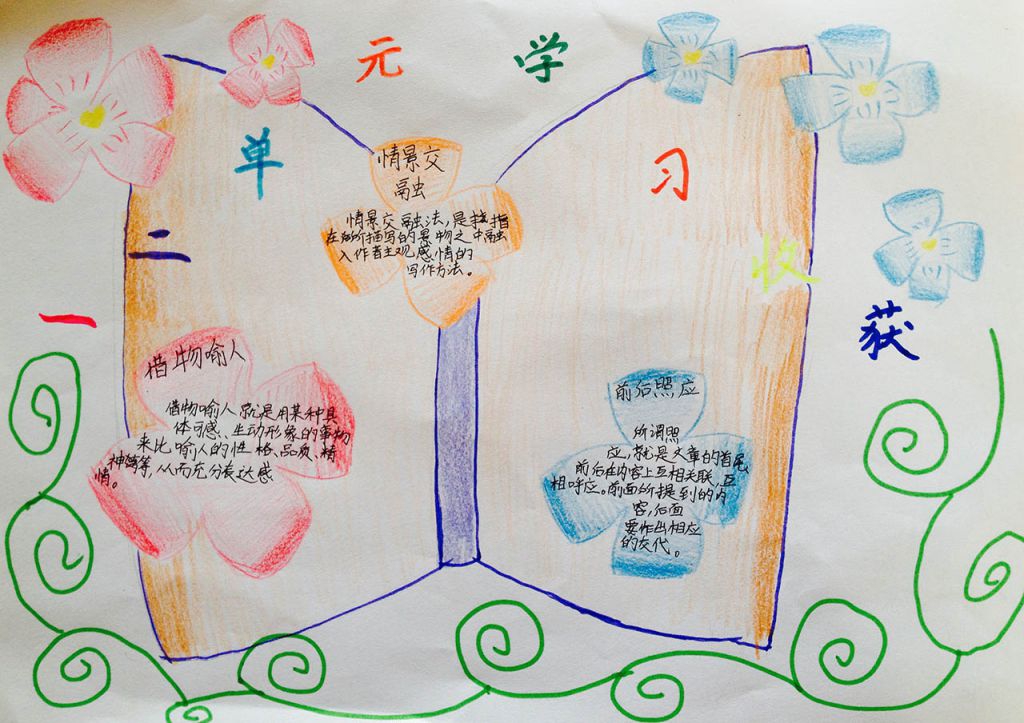 一二单元学习收获
情景交
融
情景交融法，是指
在所描写的景物之中融
入作者主观感情的
写作方法。
借物喻人
借物喻人就是用某种具
体可感、生动形象的事物
来比喻人的性格、品质、精
神等，从而充分表达感
情。
前后照应
所谓照
应，就是文章的首尾、
前后在内容上互相关联，互
相呼应。前面所提到的内
容，后面
要作出相应
的交代。